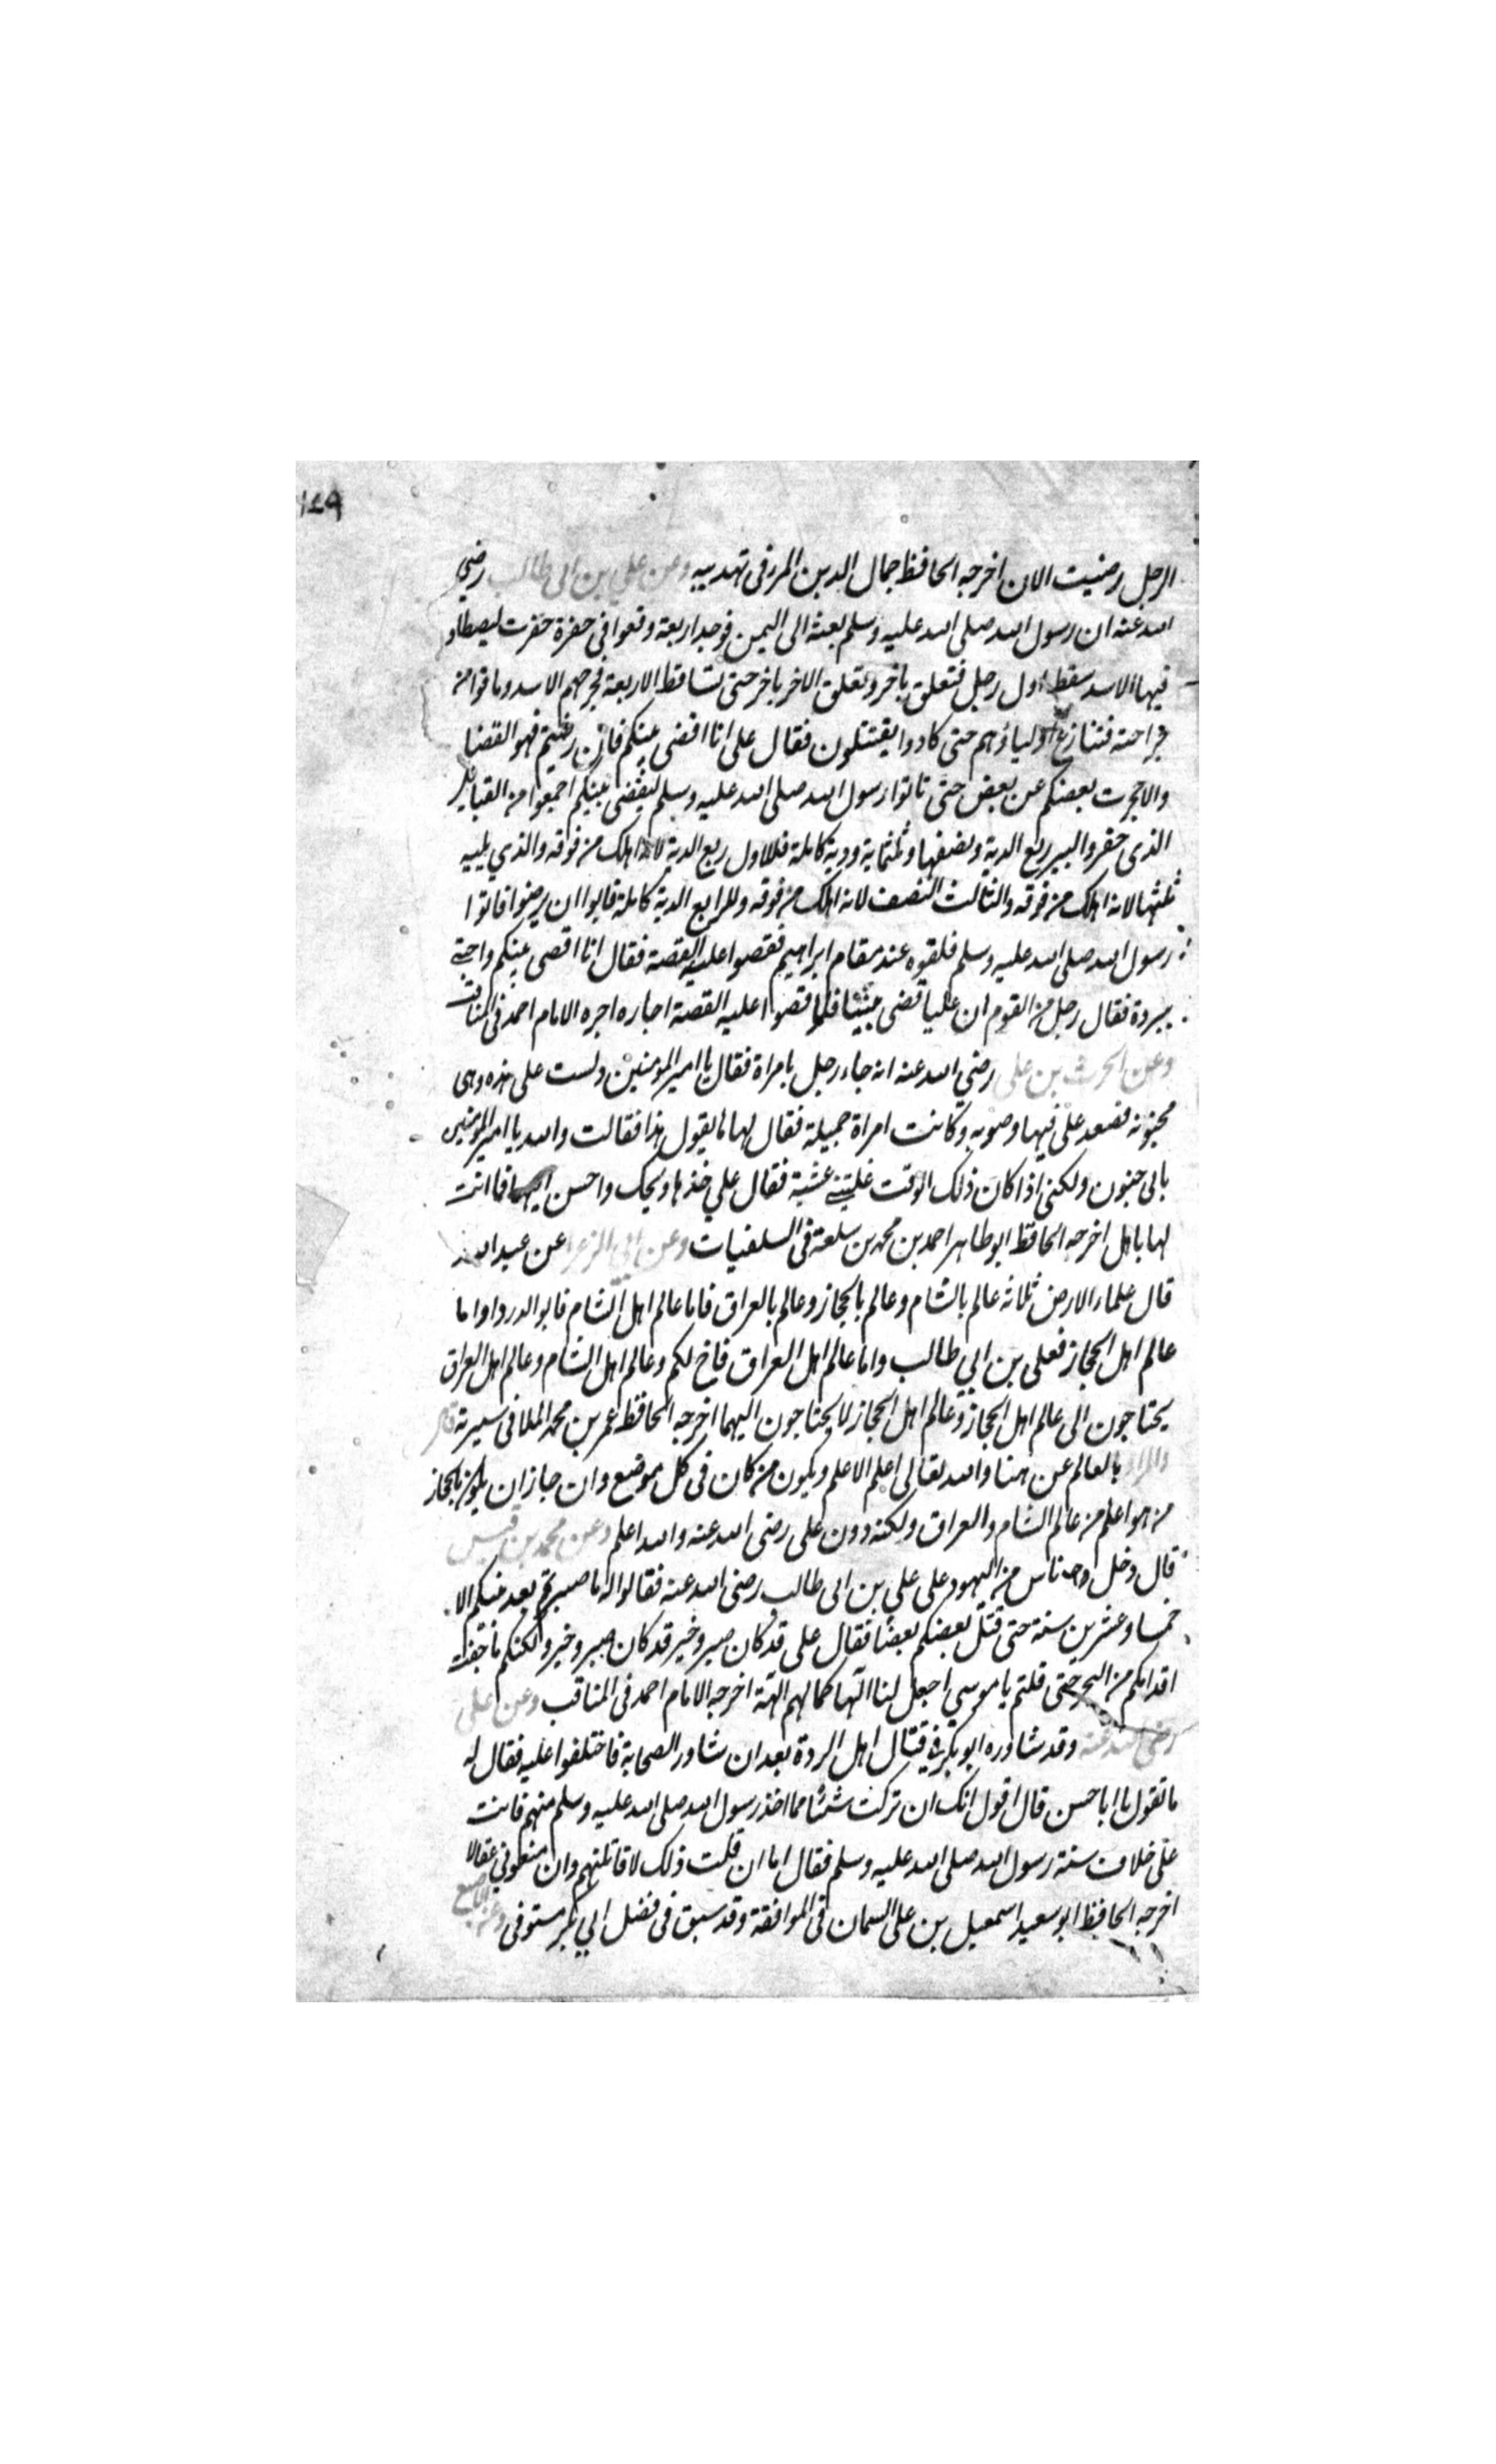 ١٤٩
الرجل رضيت الان اخرجه الحافظ جمال الدين المزفى تهديبه وعن علي بن ابى طالب رضي
الله عنه ان رسول الله صلى الله عليه وسلم بعثه الى اليمن فوجد اربعة وقعوا فى حفرة حفرت ليصطاد
فيها الاسد سقط اول رجل فتعلق باخر وتعلق الاخر باخر حتى تساقط الاربعة فجرحهم الاسد وماتوا من
جراحته فتنازع اولياؤهم حتى كادوا يقتتلون فقال على انا اقضى بينكم فان رضيتم فهو القضا
والا حجرت بعضكم عن بعض حتى تاتوا رسول الله صلى الله عليه وسلم ليقضى بينكم اجمعوا من القبايل
الذى حفروا البير ربع الدية ونصفها وثلثمايه ودية كاملة فللاول ربع الدية لانه اهلك من فوقه والذي يليه
ثلثها لانه اهلك من فوقه والثالث النصف لانه اهلك من فوقه وللرابع الدية كاملة فابوا ان يرضوا فاتوا
رسول الله صلى الله عليه وسلم فلقوه عند مقام ابراهيم فقصوا عليه القصة فقال انا اقضى بينكم واحتبى
ببردة فقال رجل من القوم ان عليا قضى بيننا فلما قصوا عليه القصة اجاره اجره الامام احمد فى المناقب
وعن الحرث بن على رضي الله عنه انه جاء رجل بامراة فقال يا امير المومنين دلست على هذه وهى
مجنونة فصعد على فيها وصوبه وكانت امراة جميلة فقال لها ما يقول هذا فقالت والله يا امير المومنين
بابى جنون ولكنى اذا كان ذلك الوقت غلبتنى غشية فقال علي خذها ويحك واحسن اليها فما انت
لها باهل اخرجه الحافظ ابو طاهر احمد بن محمد بن سلعة فى السلفيات وعن ابي الزعرا عن عبد الله
قال علماء الارض ثلاثه عالم بالشام وعالم بالحجاز وعالم بالعراق فاما عالم اهل الشام فابو الدرداوا ما
عالم اهل الحجاز فعلى بن ابي طالب واما عالم اهل العراق فاخ لكم وعالم اهل الشام وعالم اهل العراق
يحتاجون الى عالم اهل الحجاز وعالم اهل الحجاز لا يحتاجون اليهما اخرجه الحافظ عمر بن محمد الملافى سيرته
والمراد بالعالم عن هنا والله تعالى اعلم الاعلم ويكون من كان فى كل موضع وان جاز ان يكون بالحجاز
من هو اعلم من عالم الشام والعراق ولكنه دون على رضى الله عنه والله اعلم وعن محمد بن قيس
قال دخل ناس من اليهود على علي بن ابى طالب رضى الله عنه فقالوا له ما صبرتم بعد نبيكم الا
خمسا وعشرين سنة حتى قتل بعضكم بعضا فقال على قد كان صبر وخير قد كان صبر وخير ولكنكم ما جفت
اقدامكم من البحر حتى قلتم يا موسى اجعل لنا الها كما لهم الهة اخرجه الامام احمد فى المناقب وعن على
رضى الله عنه وقد شاوره ابو بكر فى قتال اهل الردة بعد ان شاور الصحابة فاختلفوا عليه فقال له
ما تقول يا ابا حسن قال اقول انك ان تركت شئا مما اخذ رسول الله صلى الله عليه وسلم منهم فانت
على خلاف سنة رسول الله صلى الله عليه وسلم فقال اما ان قلت ذلك لاقاتلنهم وان منعونى عقالا
اخرجه الحافظ ابو سعيد اسمعيل بن على السمان فى الموافقة وقد سبق فى فضل ابي بكر مستوفى